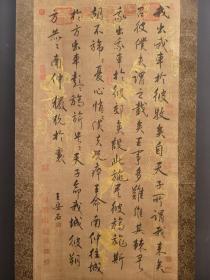 我出我車於彼牧矣自天子所謂我来矣
召彼僕夫謂之載矣王事多難維其棘
矣我出我車於彼郊矣設此旐矣彼旟旐斯
胡不旆憂心悄悄僕夫况瘁王命南仲往城
於方出車彭彭旂旐央央天子命我城彼朔
方赫赫南仲玁狁於襄
王安石